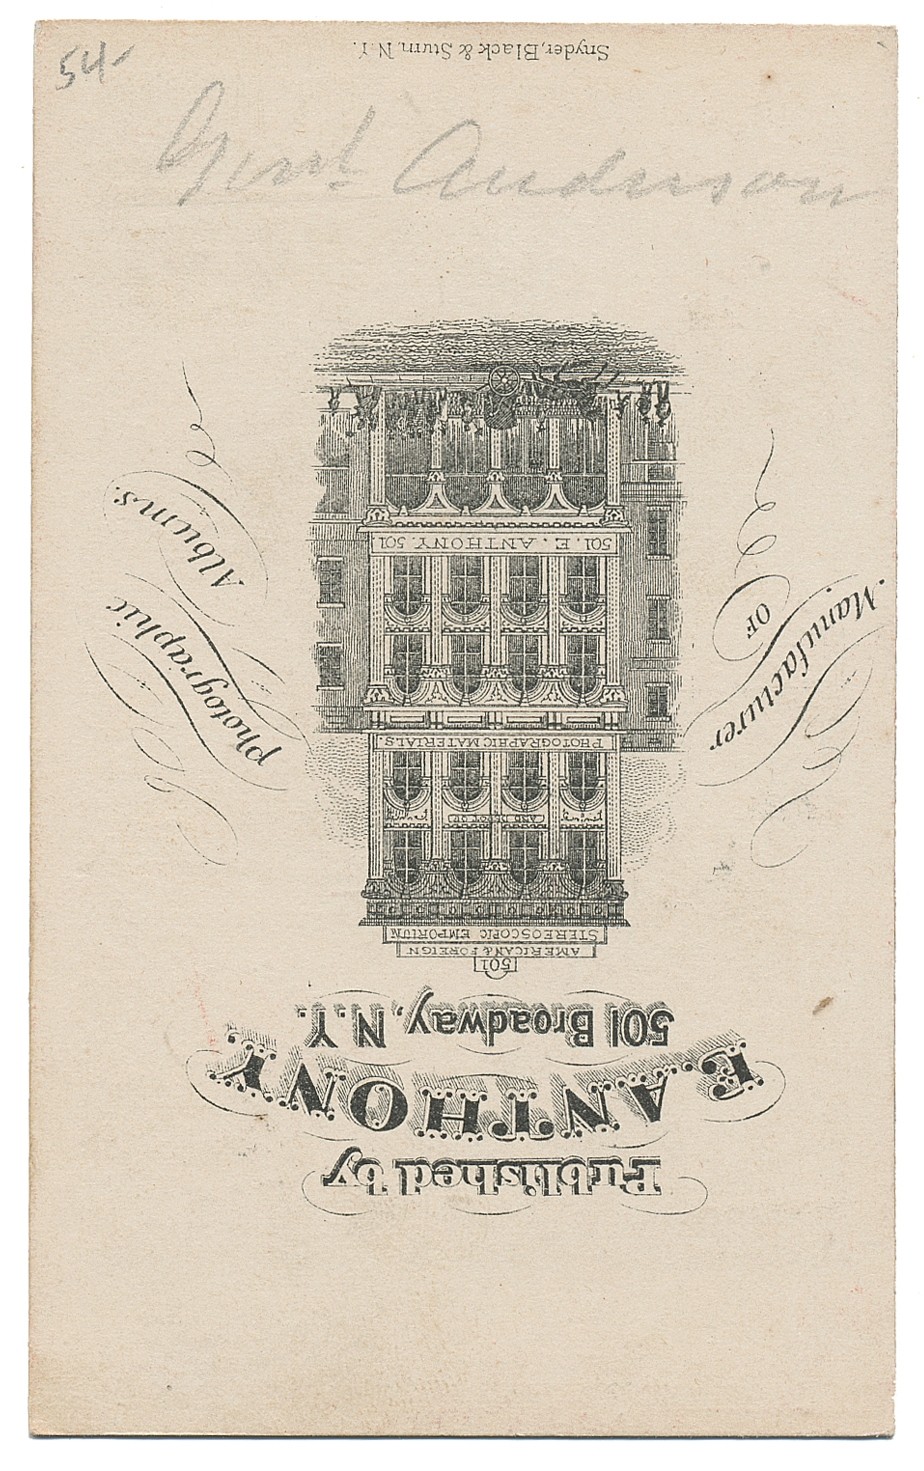 54-
Genl Anderson
Published by
E. ANTHONY
501 Broadway, N.Y.
501
AMERICAN & FOREIGN
STEREOSCOPIC EMPORIUM
AND DEPOT OF
PHOTOGRAPHIC MATERIALS.
501. E. ANTHONY. 501
Manufacturer
OF
Photographic
Albums.
Snyder, Black & Sturn, N.Y.